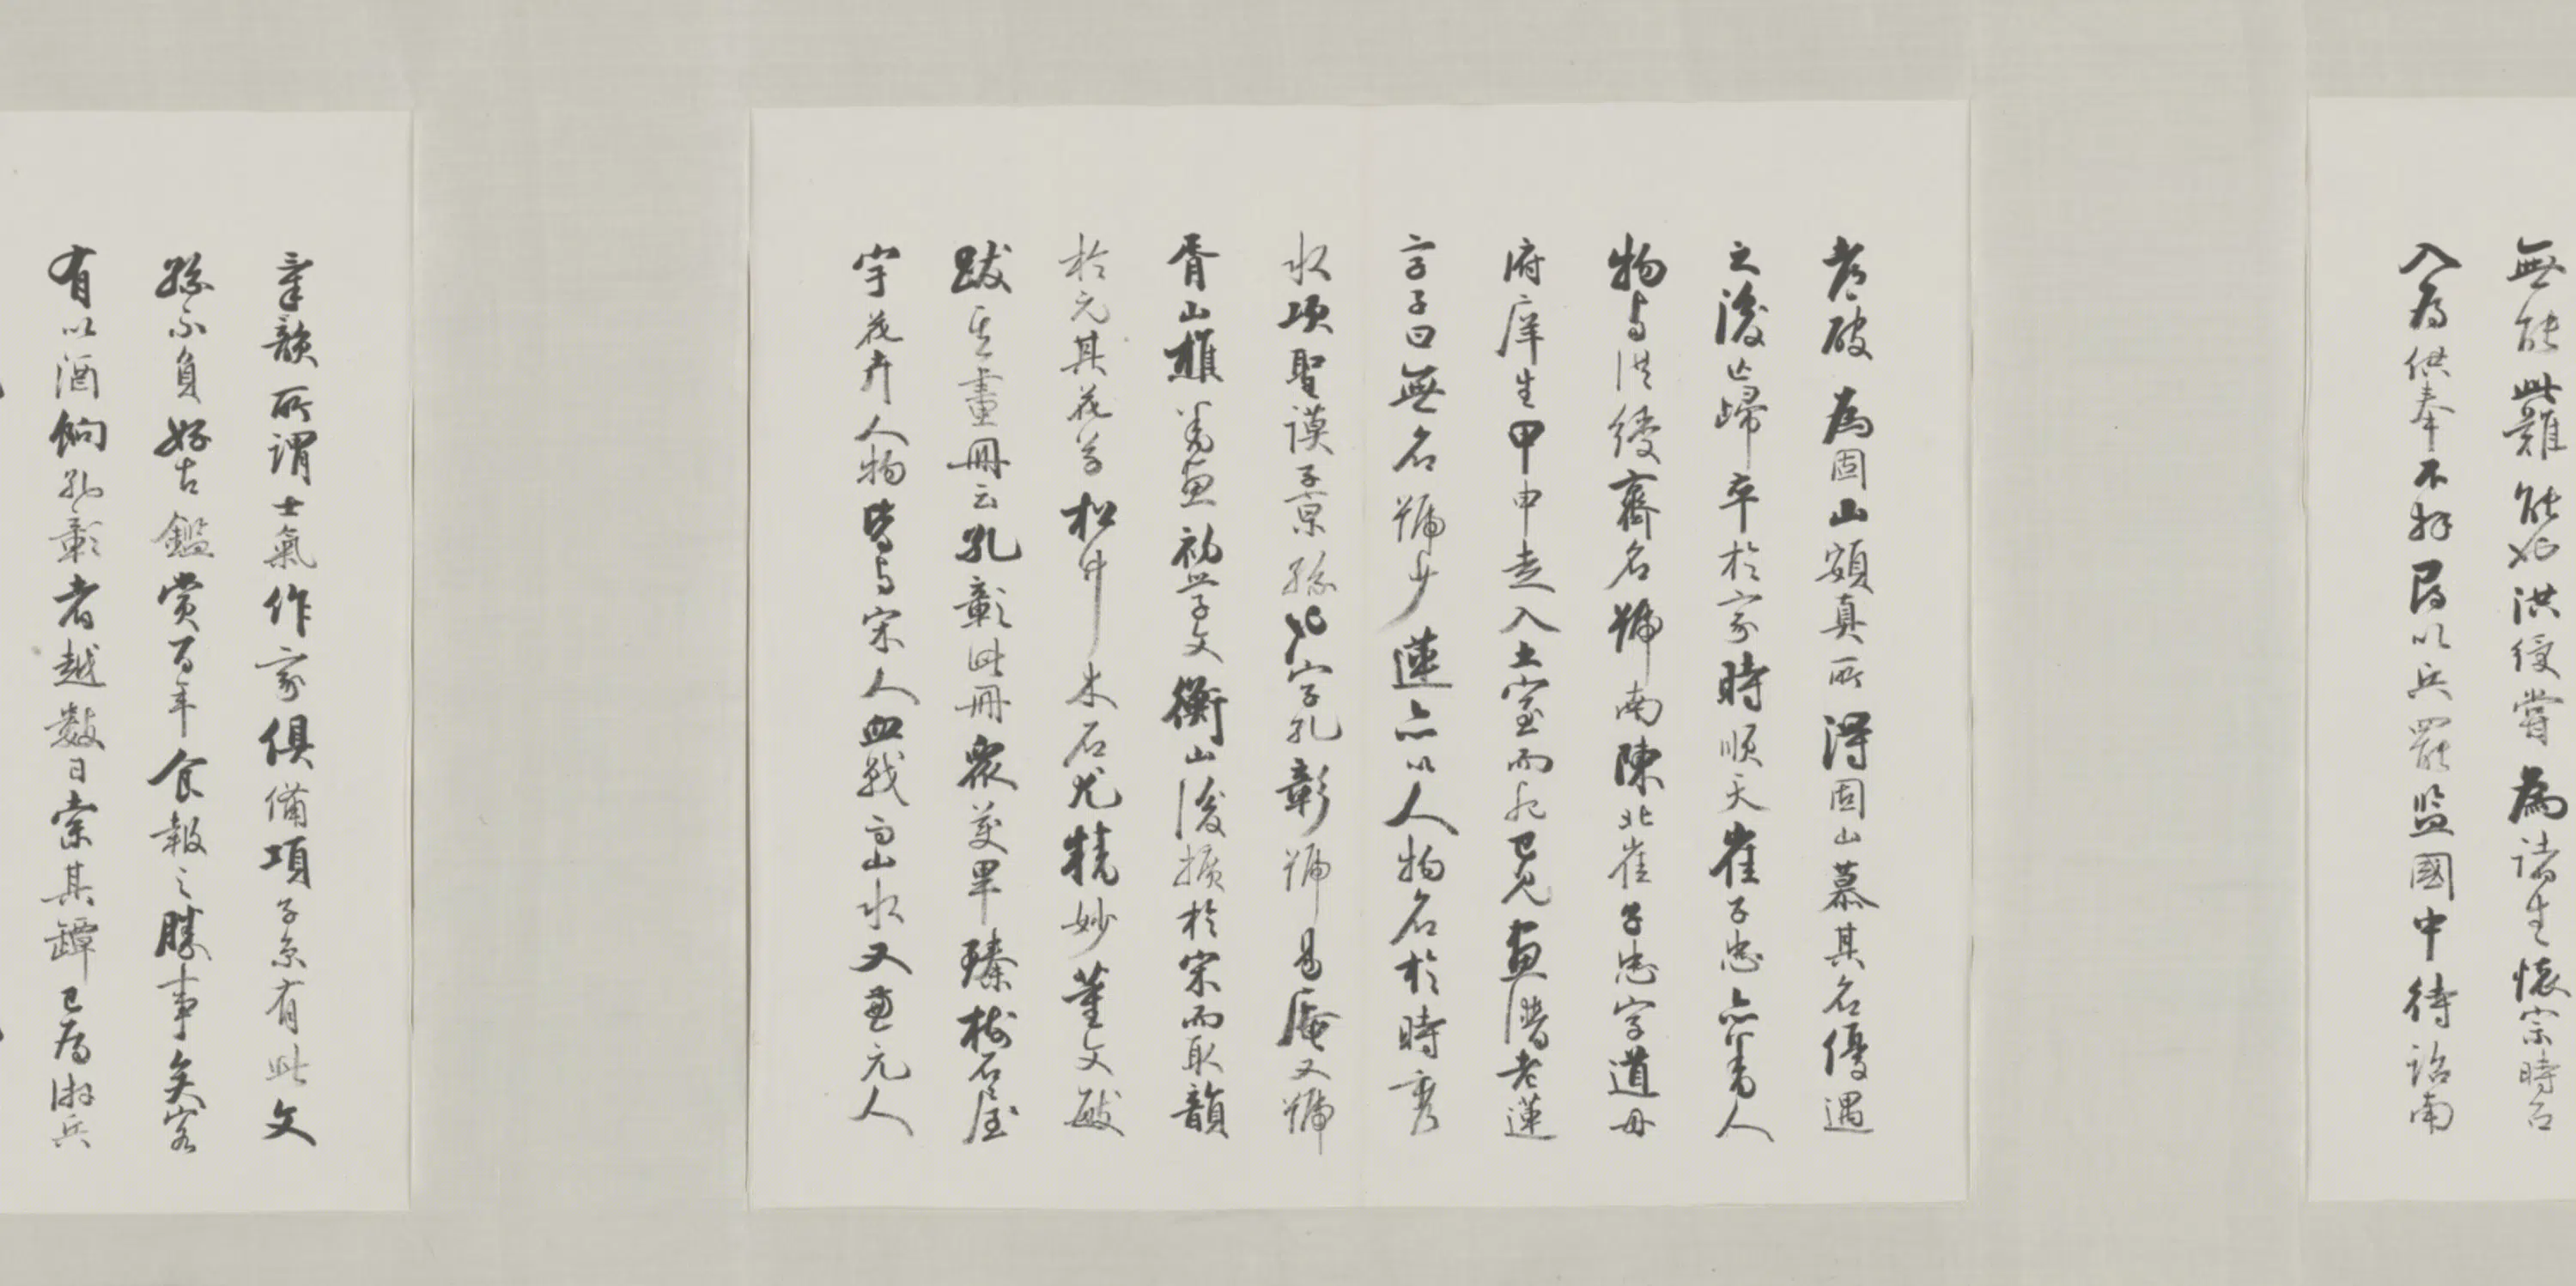 無能此難能也洪綬嘗為諸生懷宗時召
入為供奉不拜尋以兵罷監國中待詔南
老破為固山額真所得固山慕其名優遇
之後亡歸卒於家時順天崔子忠亦以人
物與洪綬齊名號南陳北崔子忠字道毋
府庠生甲申走入土室而死已見畫譜老蓮
字子曰無名號少蓮亦以人物名於時秀
水項聖謨子京孫也字孔彰號易庵又號
胥山樵善畫初學文衡山後擴於宋而取韻
於元其花草松竹木石尤精妙董文敏
跋其畫冊云孔彰此冊眾美畢臻樹石屋
宇花卉人物皆與宋人血戰而山水又兼元人
氣韻所謂士氣作家俱備項子京有此文
孫不負好古鑑賞百年食報之勝事矣客
有以酒餉孔彰者越數日索其罈已為游兵